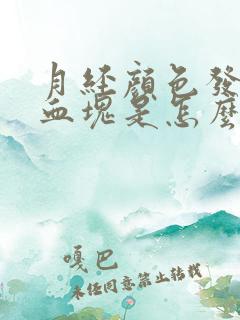 月經顏色發
血塊是怎麼
嘎巴
未經同意禁止轉載